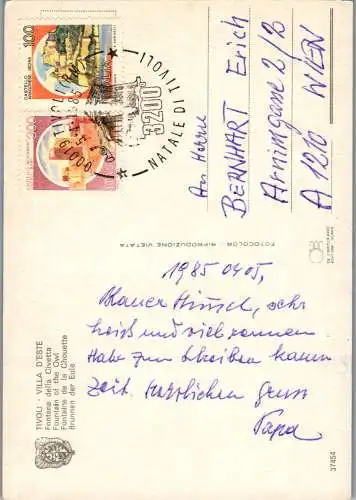 100
CASTELLO
200
3200
* NATALE DI TIVOLI *
An Herrn
BERNHART Erich
Arnimgasse 2/B
A 1210 WIEN
FOTOCOLOR - RIPRODUZIONE VIETATA
1985 04 05,
Blauer Himmel, sehr
heiß und viel rennen.
Habe zum Schreiben kaum
Zeit. Herzlichen Gruss
Papa
TIVOLI - VILLA D'ESTE
Fontana della Civetta
Fountain of the Owl
Fontaine de la Chouette
Brunnen der Eule
37454